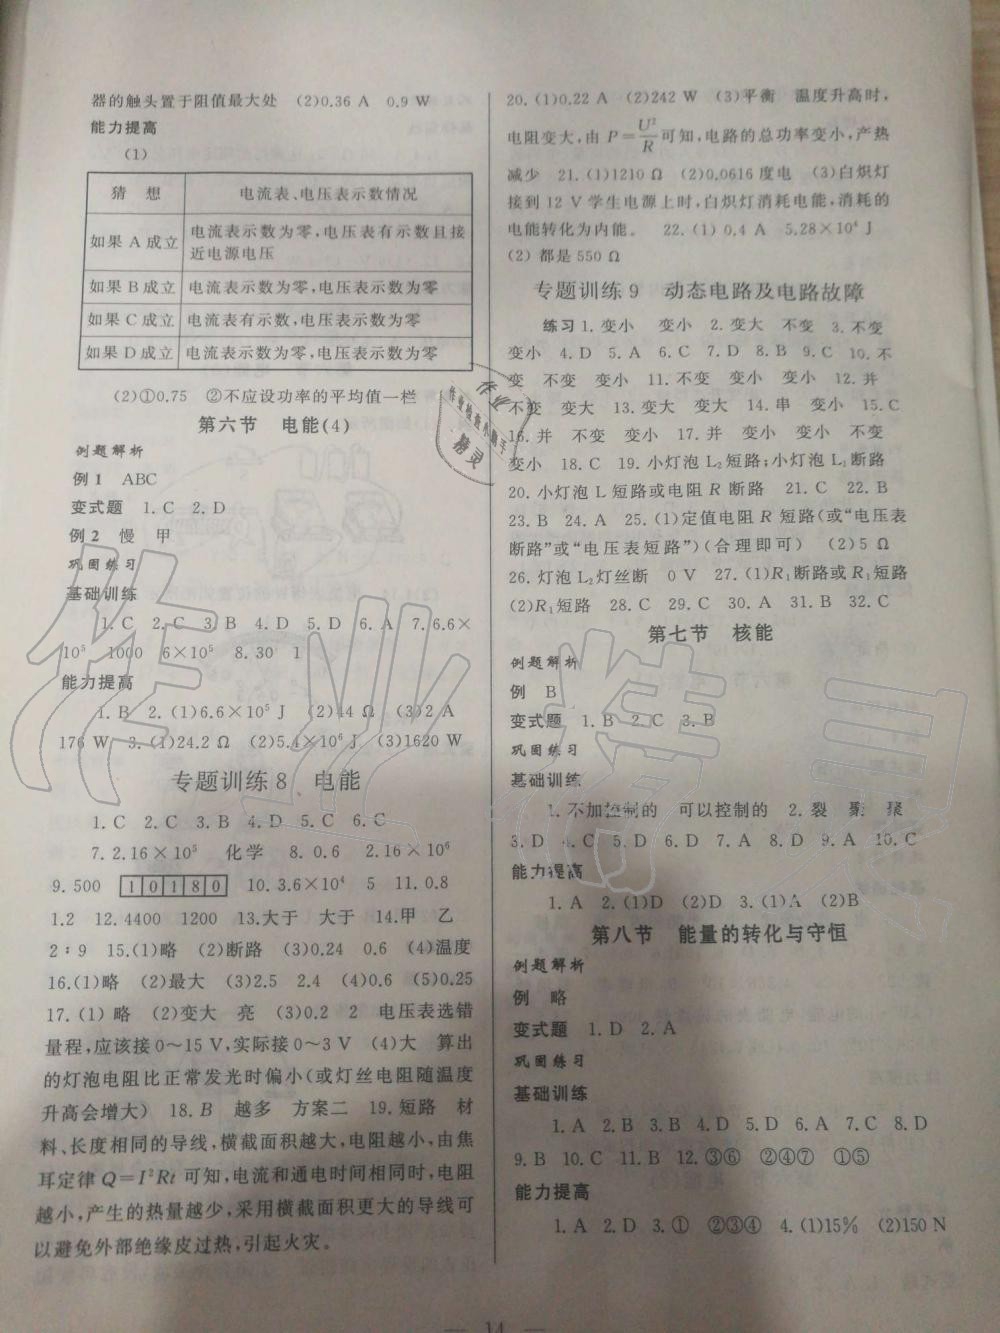 器的触头置于阻值最大处 (2)0.36 A 0.9 W
能力提高
(1)
猜 想 电流表、电压表示数情况
如果 A 成立 电流表示数为零,电压表有示数且接近电源电压
如果 B 成立 电流表示数为零,电压表示数为零
如果 C 成立 电流表有示数,电压表示数为零
如果 D 成立 电流表示数为零,电压表示数为零
(2)①0.75 ②不应设功率的平均值一栏
第六节 电能(4)
例题解析
例 1 ABC
变式题 1.C 2.D
例 2 慢 甲
巩固练习
基础训练
1.C 2.C 3.B 4.D 5.D 6.A 7.6.6×
10⁵ 1000 6×10⁵ 8.30 1
能力提高
1.B 2.(1)6.6×10⁵ J (2)44 Ω (3)2 A
176 W 3.(1)24.2 Ω (2)5.4×10⁶ J (3)1620 W
专题训练 8 电能
1.C 2.C 3.B 4.D 5.C 6.C
7.2.16×10⁵ 化学 8.0.6 2.16×10⁶
9.500 10180 10.3.6×10⁴ 5 11.0.8
1.2 12.4400 1200 13.大于 大于 14.甲 乙
2∶9 15.(1)略 (2)断路 (3)0.24 0.6 (4)温度
16.(1)略 (2)最大 (3)2.5 2.4 (4)0.6 (5)0.25
17.(1)略 (2)变大 亮 (3)0.2 2 电压表选错
量程,应该接 0～15 V,实际接 0～3 V (4)大 算出
的灯泡电阻比正常发光时偏小(或灯丝电阻随温度
升高会增大) 18.B 越多 方案二 19.短路 材
料、长度相同的导线,横截面积越大,电阻越小,由焦
耳定律 Q=I²Rt 可知,电流和通电时间相同时,电阻
越小,产生的热量越少,采用横截面积更大的导线可
以避免外部绝缘皮过热,引起火灾。
20.(1)0.22 A (2)242 W (3)平衡 温度升高时,
电阻变大,由 P=U²/R 可知,电路的总功率变小,产热
减少 21.(1)1210 Ω (2)0.0616 度电 (3)白炽灯
接到 12 V 学生电源上时,白炽灯消耗电能,消耗的
电能转化为内能。 22.(1) 0.4 A 5.28×10⁴ J
(2) 都是 550 Ω
专题训练 9 动态电路及电路故障
练习 1.变小 变小 2.变大 不变 3.不变
变小 4.D 5.A 6.C 7.D 8.B 9.C 10.不
变 不变 变小 11.不变 不变 变小 12.并
不变 变大 13.变大 不变 14.串 变小 15.C
16.并 不变 变小 17.变小 变小 不变
变小 18.C 19.小灯泡 L₂ 短路;小灯泡 L₁断路
20.小灯泡 L 短路或电阻 R 断路 21.C 22.B
23.B 24.A 25.(1)定值电阻 R 短路(或“电压表
断路”或“电压表短路”)(合理即可) (2)5 Ω
26.灯泡 L₂灯丝断 0 V 27.(1)R₁断路或 R₁短路
(2)R₁短路 28.C 29.C 30.A 31.B 32.C
第七节 核能
例题解析
例 B
变式题 1.B 2.C 3.B
巩固练习
基础训练
1.不加控制的 可以控制的 2.裂 聚 聚
3.D 4.C 5.D 6.D 7.A 8.D 9.A 10.C
能力提高
1.A 2.(1)D (2)D 3.(1)A (2)B
第八节 能量的转化与守恒
例题解析
例 略
变式题 1.D 2.A
巩固练习
基础训练
1.A 2.B 3.B 4.D 5.D 6.A 7.C 8.D
9.B 10.C 11.B 12.③⑥ ②④⑦ ①⑤
能力提高
1.A 2.D 3.① ②③④ 4.(1)15% (2)150 N
— 14 —